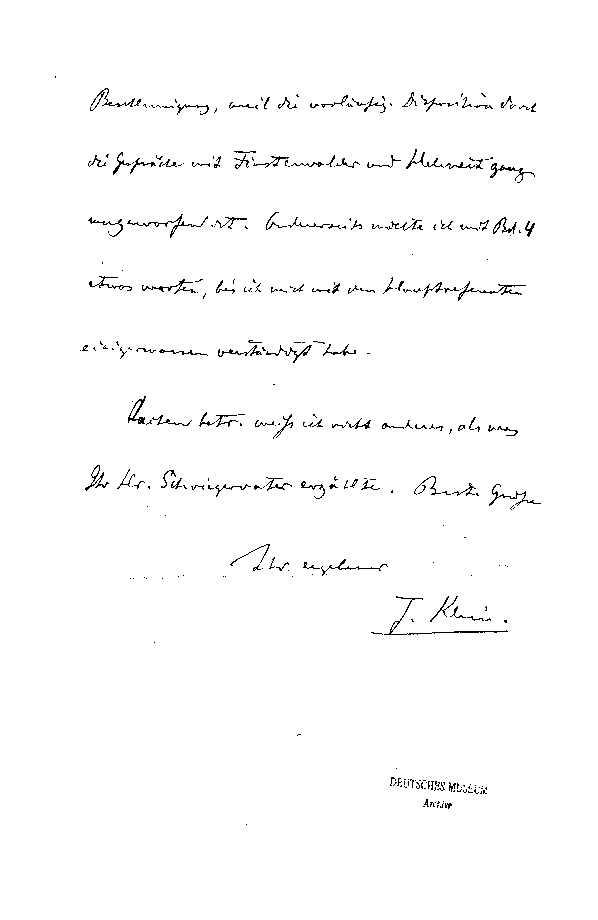 Beschleunigung, weil die vorläufige Disposition durch
die Gespräche mit Finsterwalder und Helmert ganz
umgeworfen ist. Andererseits möchte ich mit Bd. 4
etwas warten, bis ich mich mit den Hauptreferenten
einigermassen verständigt habe.
betr. weiß ich nicht anderes, als was
Ihr Hr. Schwiegervater erzählte. Beste Grüße
Ihr ergebener
F. Klein.
DEUTSCHES MUSEUM
Archive